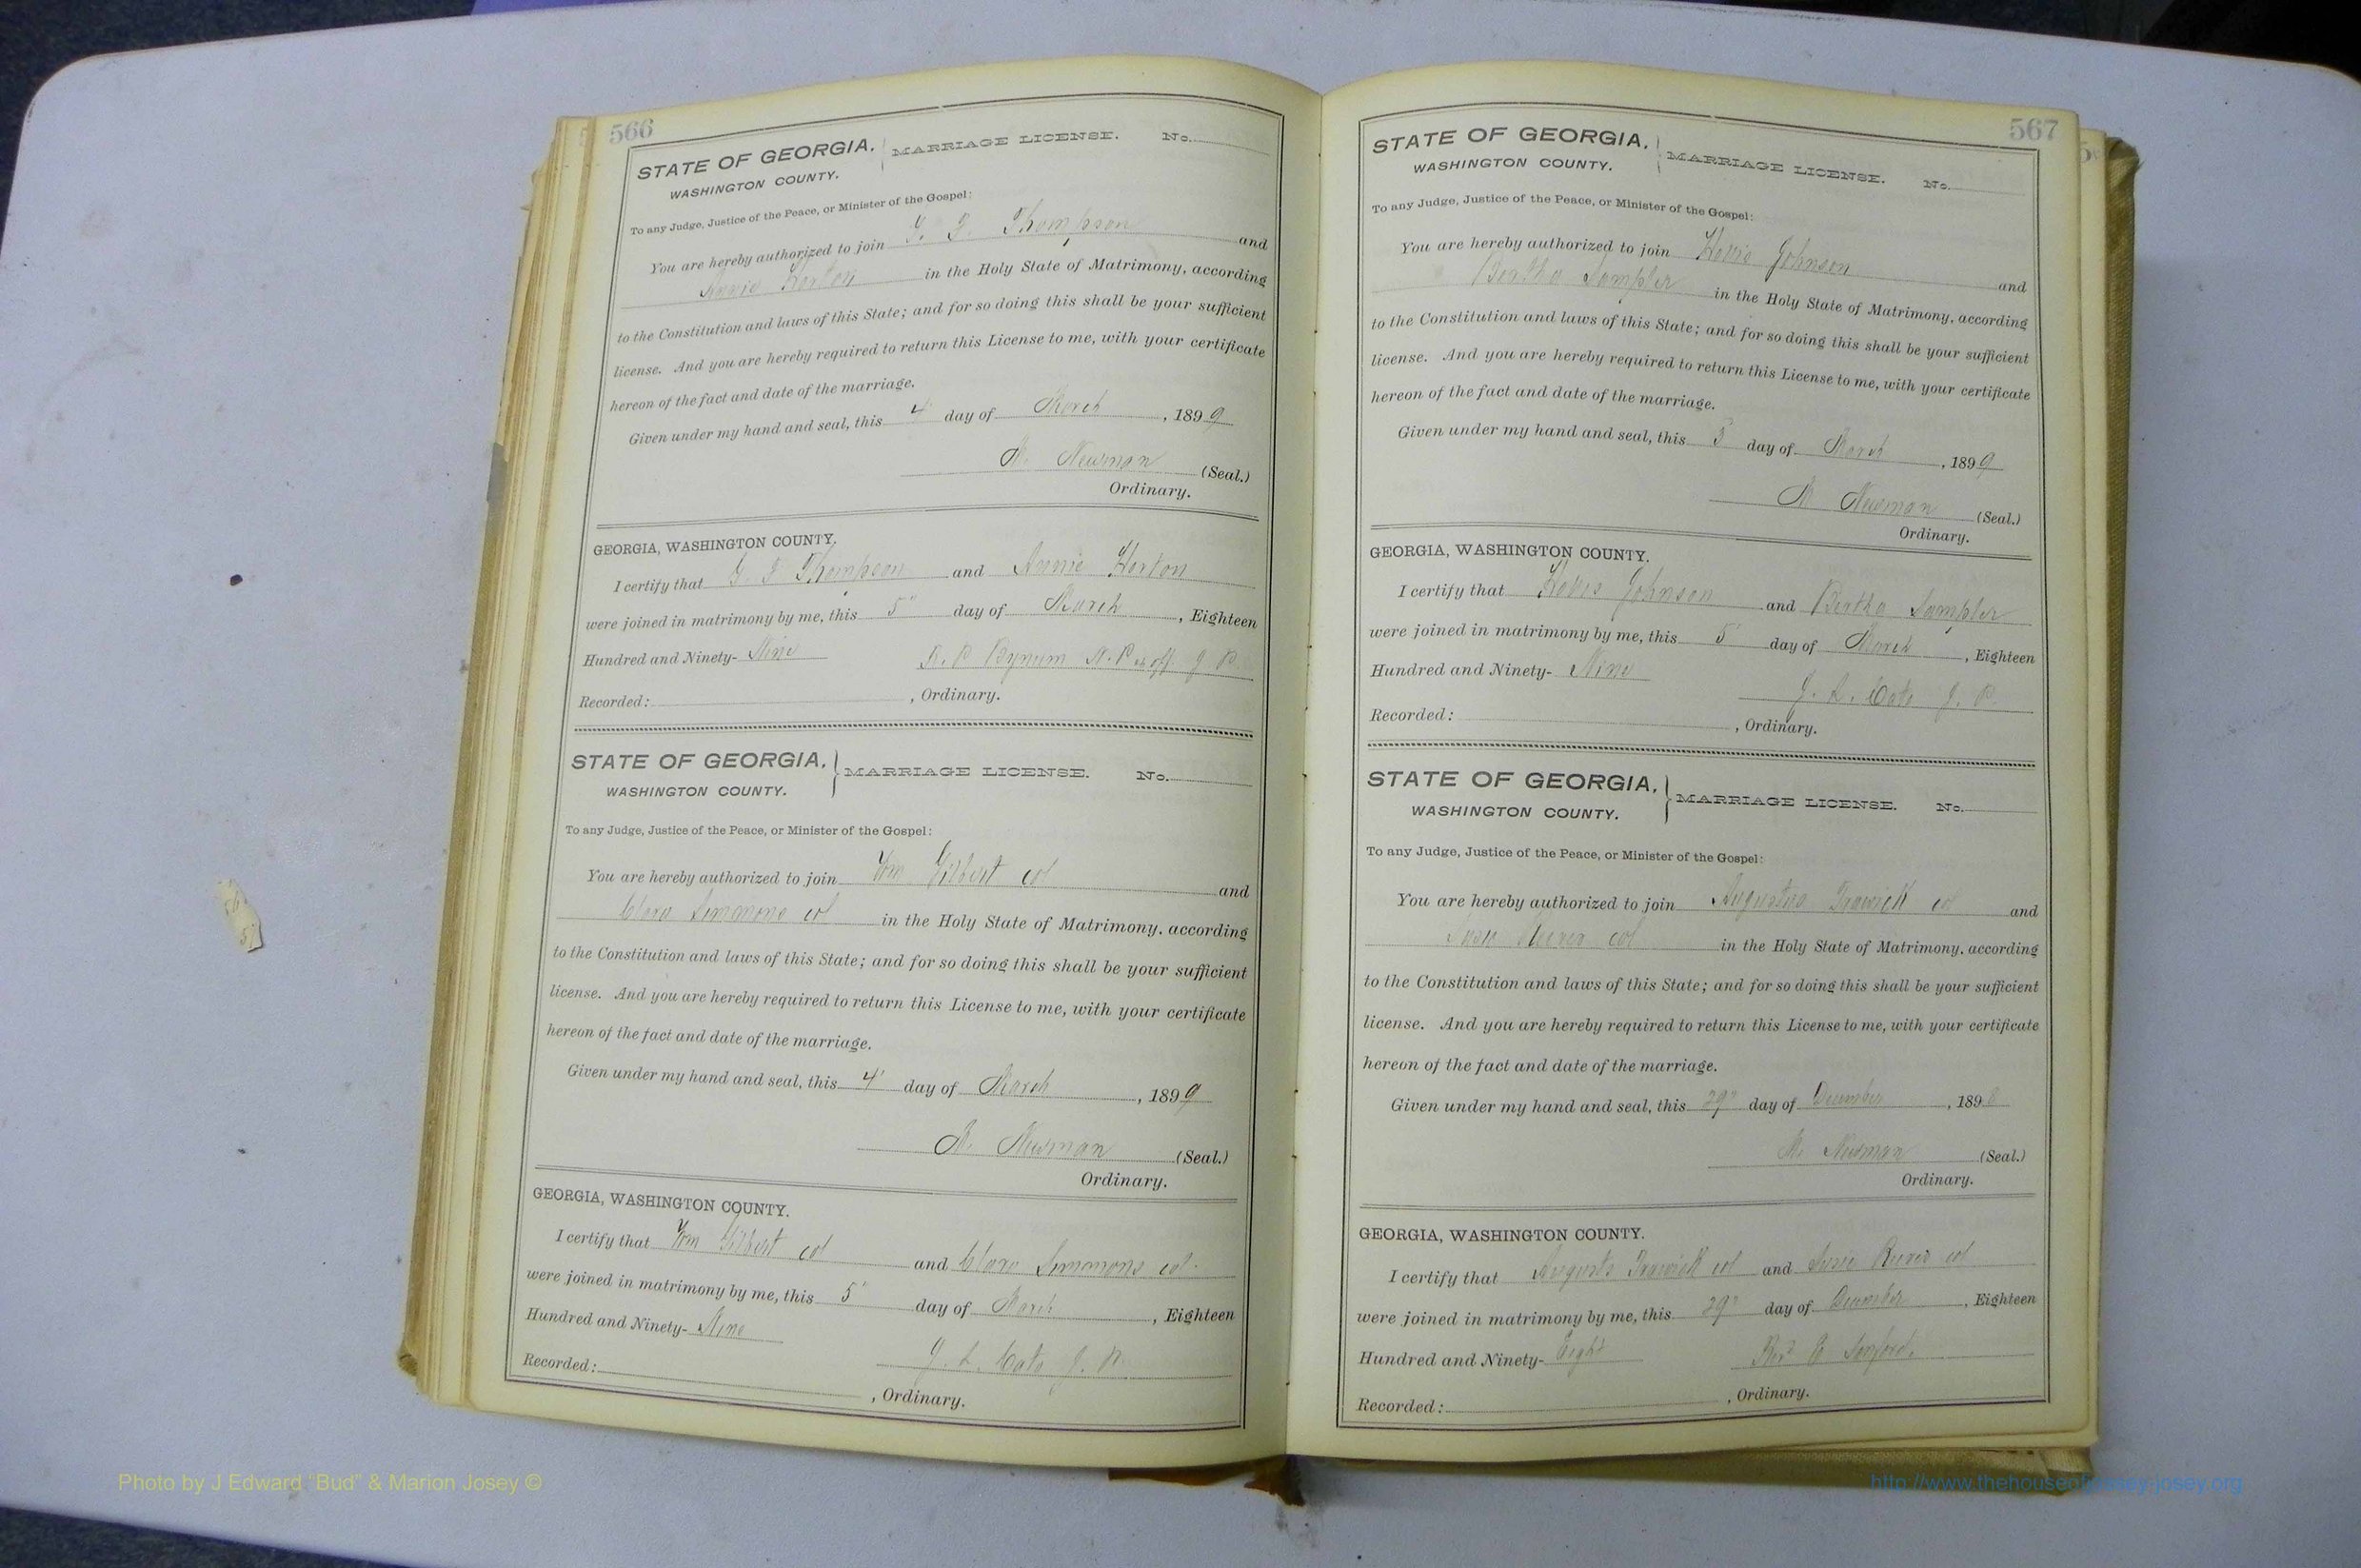 566
STATE OF GEORGIA, MARRIAGE LICENSE. No.
WASHINGTON COUNTY.
To any Judge, Justice of the Peace, or Minister of the Gospel:
You are hereby authorized to join Thompson and
Annie Horton in the Holy State of Matrimony, according
to the Constitution and laws of this State; and for so doing this shall be your sufficient
license. And you are hereby required to return this License to me, with your certificate
hereon of the fact and date of the marriage.
Given under my hand and seal, this 4 day of March, 1899
M. Newman (Seal.)
Ordinary.
GEORGIA, WASHINGTON COUNTY.
I certify that Thompson and Annie Horton
were joined in matrimony by me, this 5" day of March, Eighteen
Hundred and Ninety- Nine R. P. Bynum N. P. J P
Recorded: , Ordinary.
STATE OF GEORGIA, MARRIAGE LICENSE. No.
WASHINGTON COUNTY.
To any Judge, Justice of the Peace, or Minister of the Gospel:
You are hereby authorized to join Wm Gilbert col and
Clara Simmons col in the Holy State of Matrimony, according
to the Constitution and laws of this State; and for so doing this shall be your sufficient
license. And you are hereby required to return this License to me, with your certificate
hereon of the fact and date of the marriage.
Given under my hand and seal, this 4" day of March, 1899
M. Newman (Seal.)
Ordinary.
GEORGIA, WASHINGTON COUNTY.
I certify that Wm Gilbert col and Clara Simmons col.
were joined in matrimony by me, this 5" day of March, Eighteen
Hundred and Ninety- Nine J. L. Cato J. P.
Recorded: , Ordinary.
567
STATE OF GEORGIA, MARRIAGE LICENSE. No.
WASHINGTON COUNTY.
To any Judge, Justice of the Peace, or Minister of the Gospel:
You are hereby authorized to join Johnson and
Bertha Sumpter in the Holy State of Matrimony, according
to the Constitution and laws of this State; and for so doing this shall be your sufficient
license. And you are hereby required to return this License to me, with your certificate
hereon of the fact and date of the marriage.
Given under my hand and seal, this day of March, 1899
M Newman (Seal.)
Ordinary.
GEORGIA, WASHINGTON COUNTY.
I certify that Johnson and Bertha Sumpter
were joined in matrimony by me, this 5" day of March, Eighteen
Hundred and Ninety- Nine J. L. Cato J. P.
Recorded: , Ordinary.
STATE OF GEORGIA, MARRIAGE LICENSE. No.
WASHINGTON COUNTY.
To any Judge, Justice of the Peace, or Minister of the Gospel:
You are hereby authorized to join Augustus Trawick col and
Susie col in the Holy State of Matrimony, according
to the Constitution and laws of this State; and for so doing this shall be your sufficient
license. And you are hereby required to return this License to me, with your certificate
hereon of the fact and date of the marriage.
Given under my hand and seal, this 29" day of December, 1898
M. Newman (Seal.)
Ordinary.
GEORGIA, WASHINGTON COUNTY.
I certify that Trawick col and Susie col
were joined in matrimony by me, this 29" day of December, Eighteen
Hundred and Ninety- Eight Rev
Recorded: , Ordinary.
Photo by J Edward "Bud" & Marion Josey ©